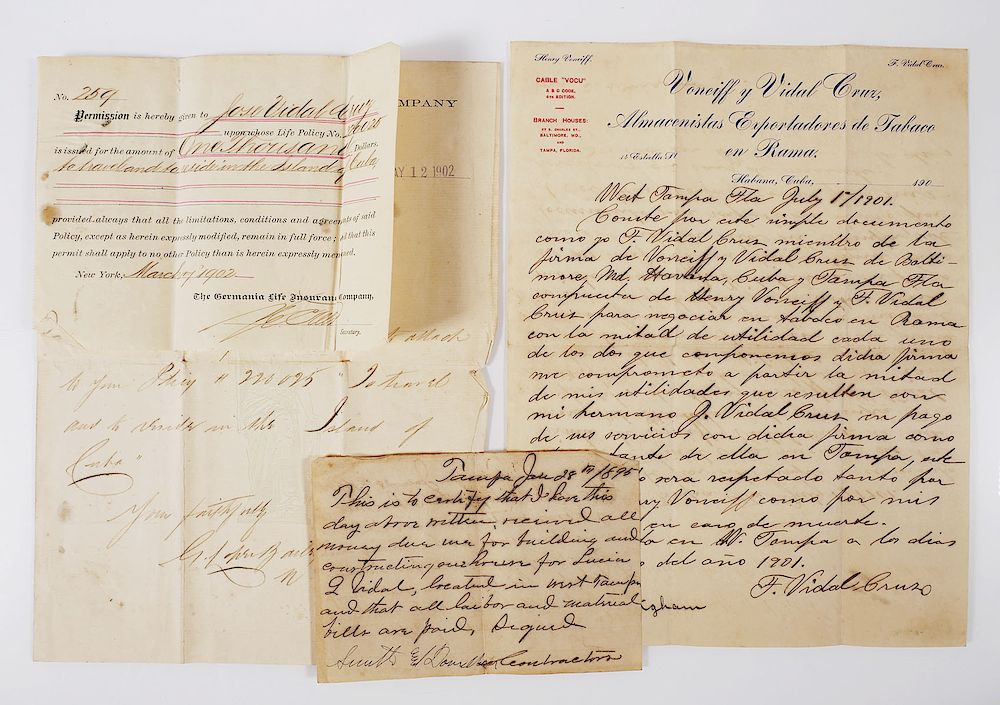 No. 259
Permission is hereby given to Jose Vidal Cruz
upon whose Life Policy No.
is issued for the amount of One thousand Dollars,
to travel and to reside in the Island of Cuba
provided always that all the limitations, conditions and agreements of said
Policy, except as herein expressly modified, remain in full force; and that this
permit shall apply to no other Policy than is herein expressly mentioned.
New York, March 1902
The Germania Life Insurance Company,
Secretary.
MPANY
AY 12 1902
attach
to your Policy # 220025 "To travel
and to reside in the Island of
Cuba"
Yours faithfully
Tampa Jan 28th/1895
This is to certify that I have this
day above written, received all
money due me for building and
constructing one house for Lucia
Q Vidal, located in West Tampa
and that all labor and material
bills are paid, Signed
Smith & Contractors
Henry Vonciff.
F. Vidal Cruz.
CABLE "VOCU"
A B C CODE,
4TH EDITION.
BRANCH HOUSES:
67 S. CHARLES ST.,
BALTIMORE, MD.,
AND
TAMPA, FLORIDA.
Vonciff y Vidal Cruz,
Almacenistas Exportadores de Tabaco
en Rama.
Estrella St
Habana, Cuba, 190
West Tampa Fla July 1st/1901.
Conste por este simple documento
como yo F. Vidal Cruz miembro de la
firma de Vonciff y Vidal Cruz de Balti-
more, Md, Havana, Cuba y Tampa Fla
compuesta de Henry Vonciff y F. Vidal
Cruz para negociar en tabaco en Rama
con la mitad de utilidad cada uno
de los dos que componemos dicha firma
me comprometo a partir la mitad
de mis utilidades que resulten con
mi hermano J. Vidal Cruz en pago
de sus servicios con dicha firma como
tante de ella en Tampa, este
sera respetado tanto por
ry Vonciff como por mis
en caso de muerte.
en W. Tampa a los dias
del año 1901.
F. Vidal Cruz
gham